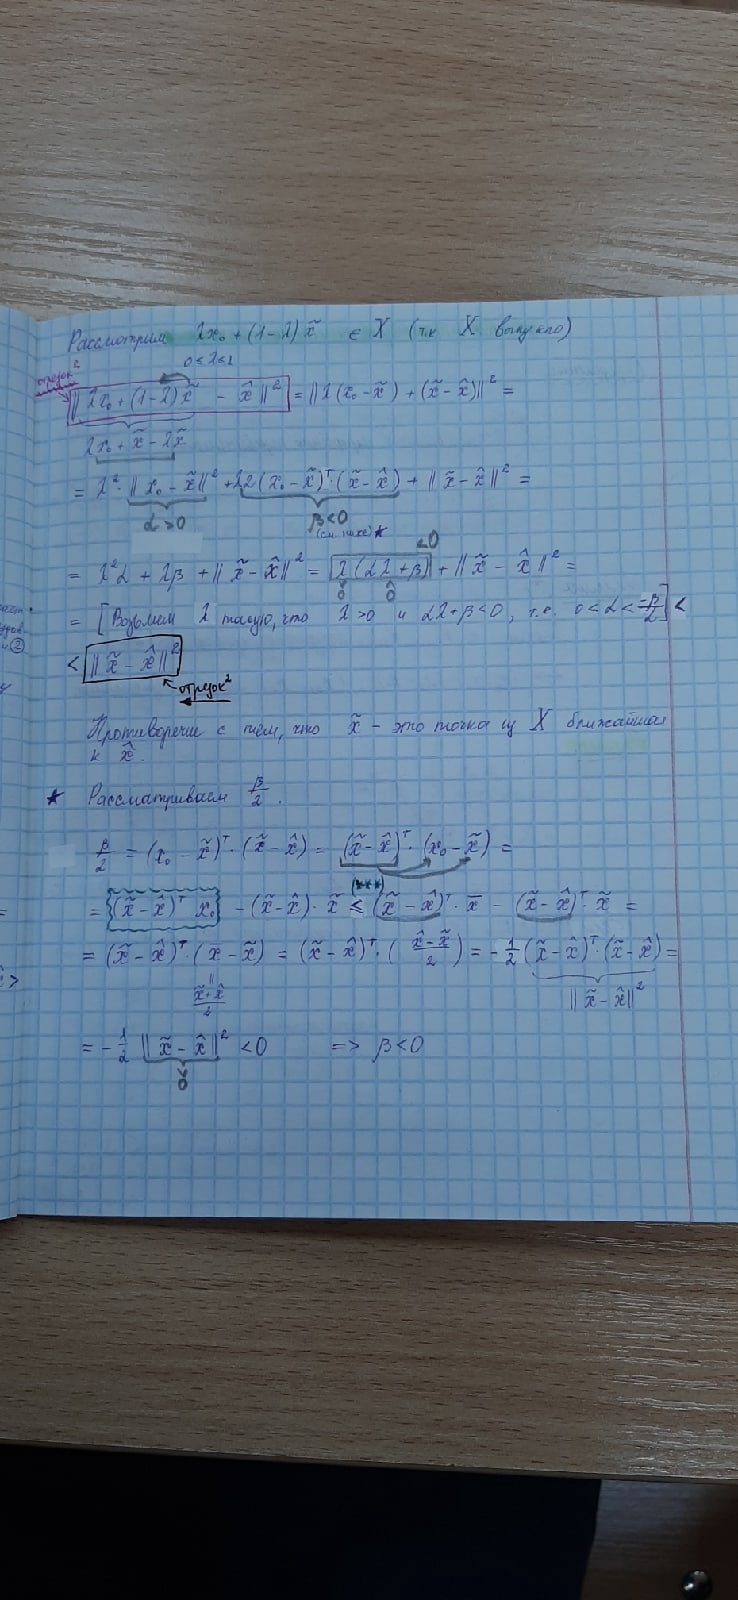 Рассмотрим λx₀ + (1-λ)x̃ ∈ X (т.к X выпукло)
0<λ<1
отрезок²
|| λx₀ + (1-λ)x̃ - x̂ ||² = || λ(x₀ - x̃) + (x̃ - x̂) ||² =
λx₀ + x̃ - λx̃
= λ² · || x₀ - x̃ ||² + λ2(x₀ - x̃)ᵀ · (x̃ - x̂) + || x̃ - x̂ ||² =
α>0 β<0
(см. ниже)★
<0
= λ²α + λβ + || x̃ - x̂ ||² = λ(αλ+β) + || x̃ - x̂ ||² =
= [Возьмем λ такую, что λ>0 и αλ+β<0, т.е. 0<λ<
< || x̃ - x̂ ||²
отрезок²
Противоречие с тем, что x̃ - это точка из X ближайшая
к x̂.
★ Рассматриваем β/2.
β/2 = (x₀ - x̃)ᵀ · (x̃ - x̂) = (x̃ - x̂)ᵀ · (x₀ - x̃) =
(***)
= (x̃ - x̂)ᵀ x₀ - (x̃ - x̂) · x̃ ≤ (x̃ - x̂)ᵀ · x̄ - (x̃ - x̂)ᵀ · x̃ =
= (x̃ - x̂)ᵀ · (x - x̃) = (x̃ - x̂)ᵀ · ( (x̂ - x̃)/2 ) = -1/2 (x̃ - x̂)ᵀ · (x̃ - x̂) =
|| (x̃ + x̂)/2 || x̃ - x̂ ||²
= -1/2 || x̃ - x̂ ||² < 0 => β<0